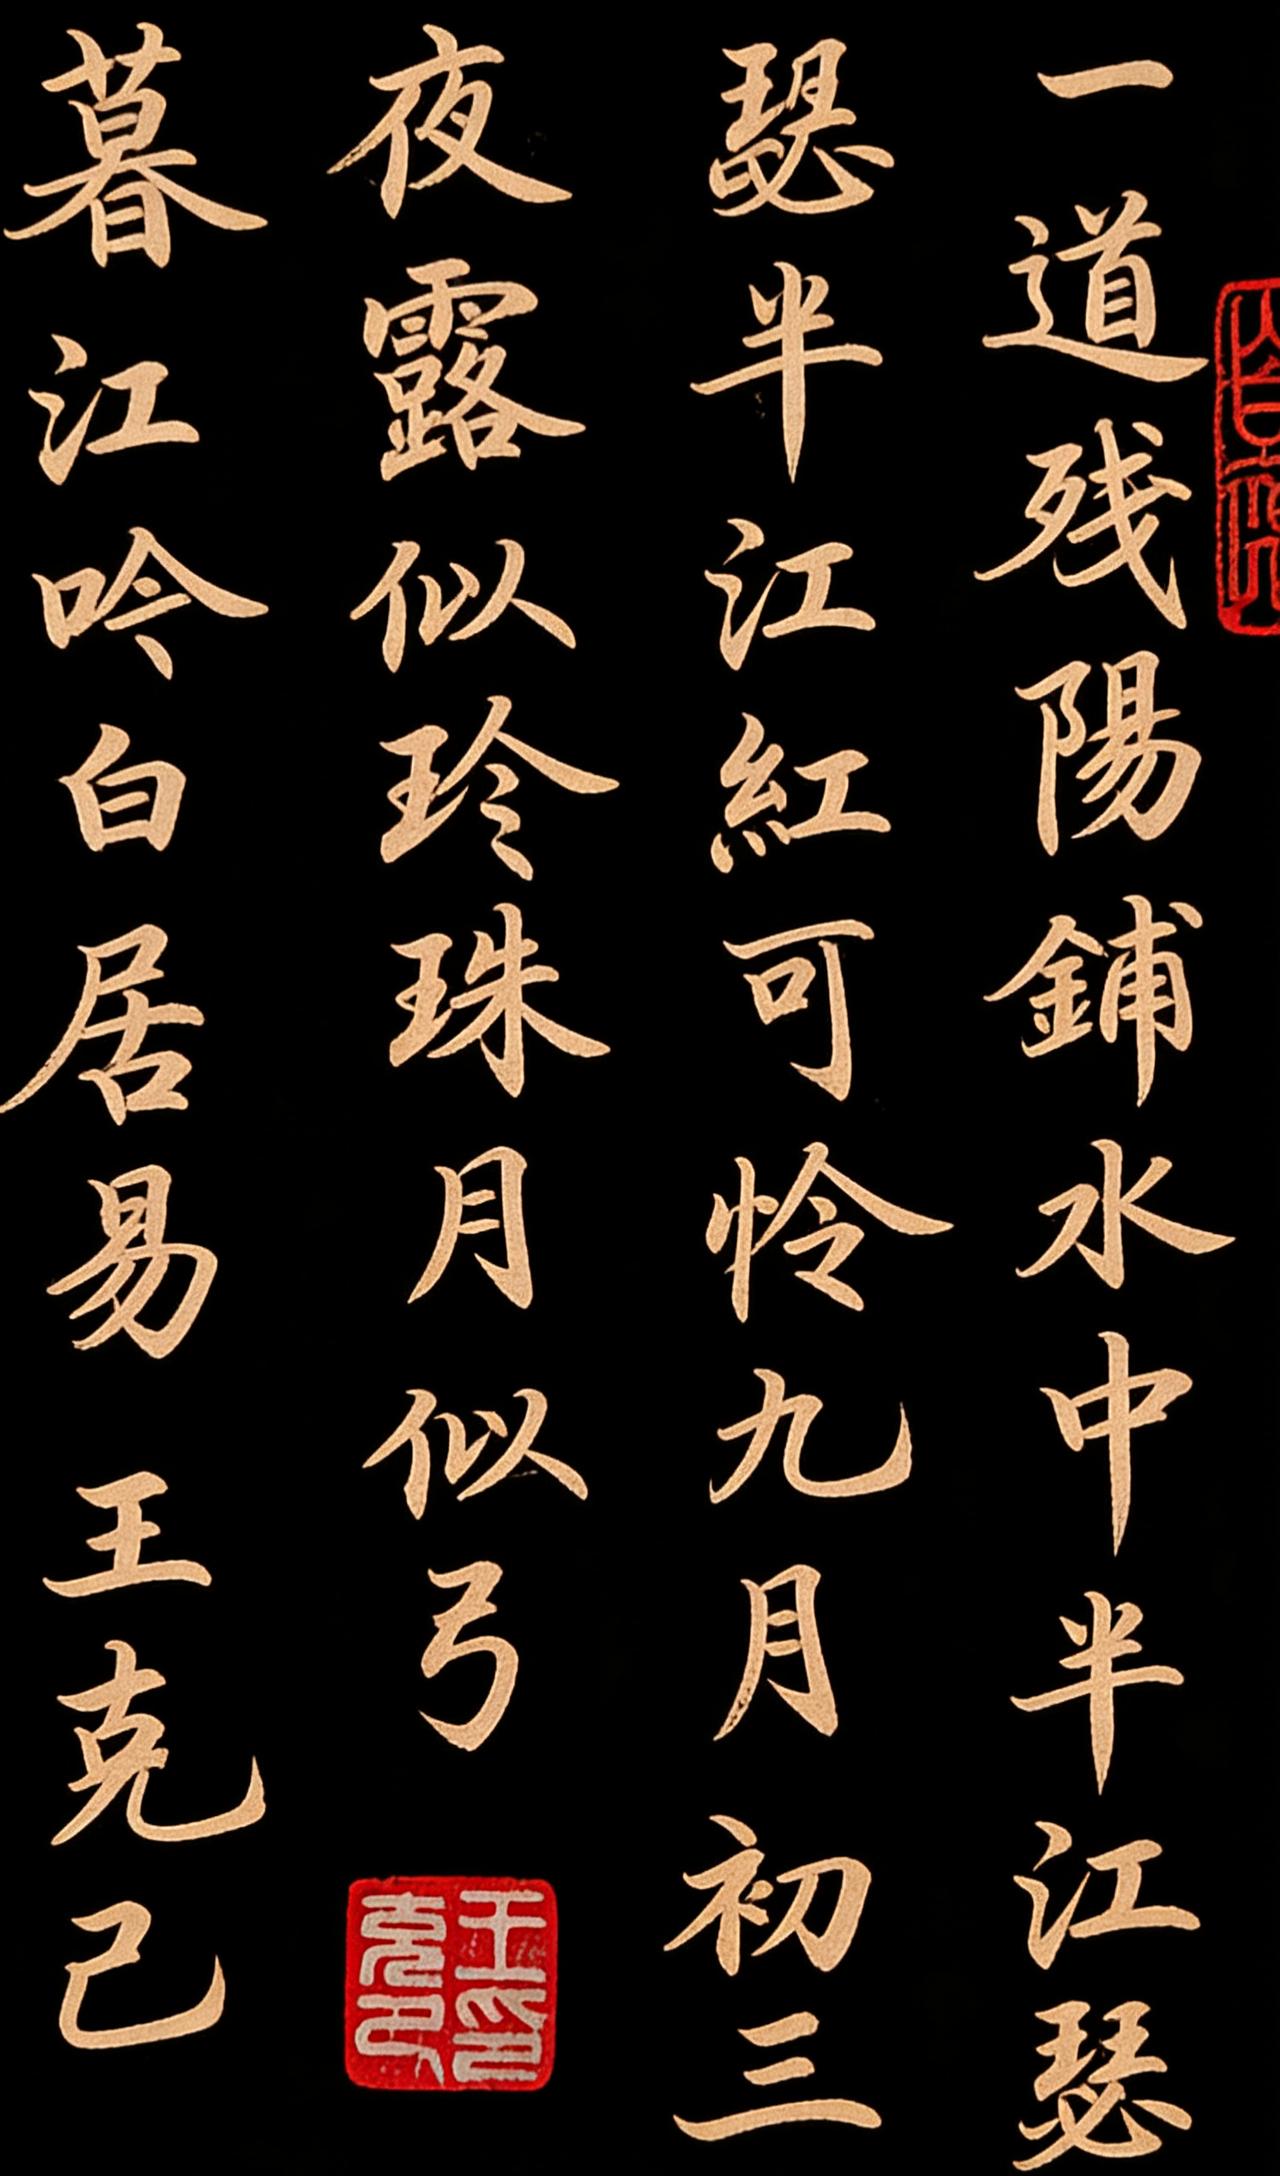 一道残陽鋪水中半江瑟
瑟半江紅可怜九月初三
夜露似珍珠月似弓
暮江吟白居易 王克己
王印克己